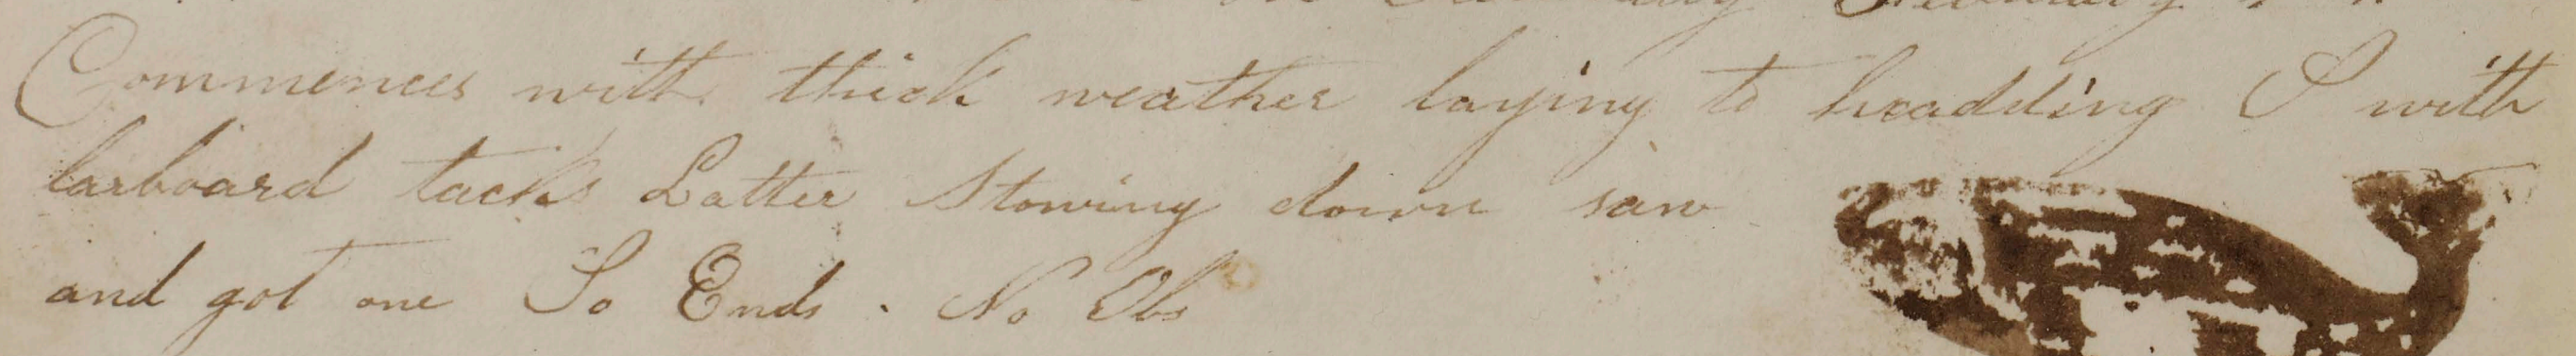 Commences with thick weather laying to headding S with
larboard tacks Latter Stowing down saw
and got one So Ends. No Obs